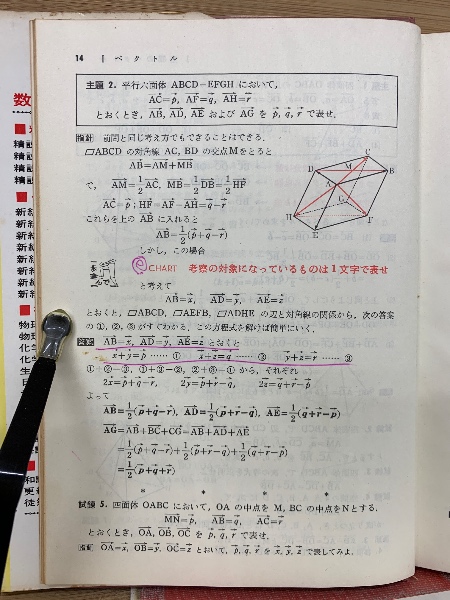 14 Ⅰ ベクトル
主題 2. 平行六面体 ABCD−EFGH において,
AC=p, AF=q, AH=r
とおくとき, AB, AD, AE および AG を p, q, r で表せ.
指針 前問と同じ考え方でもできることはできる.
□ABCD の対角線 AC, BD の交点Mをとると
AB=AM+MB
で, AM=1/2AC, MB=1/2DB=1/2HF
AC=p; HF=AF−AH=q−r
これらを上の AB に入れると
AB=1/2(p+q−r)
しかし, この場合
CHART 考察の対象になっているものは1文字で表せ
と考えて
AB=x, AD=y, AE=z
とおくと, □ABCD, □AEFB, □ADHE の辺と対角線の関係から, 次の答案
の ①, ②, ③ がすぐわかる. この方程式を解けば簡単にいく.
答案 AB=x, AD=y, AE=z とおくと
x+y=p …… ① x+z=q …… ② y+z=r …… ③
①+②−③, ①+③−②, ②+③−① から, それぞれ
2x=p+q−r, 2y=p+r−q, 2z=q+r−p
よって
AB=1/2(p+q−r), AD=1/2(p+r−q), AE=1/2(q+r−p)
AG=AB+BC+CG=AB+AD+AE
=1/2(p+q−r)+1/2(p+r−q)+1/2(q+r−p)
=1/2(p+q+r)
* * * *
試験 5. 四面体 OABC において, OA の中点を M, BC の中点をNとする.
MN=p, AB=q, AC=r
とおくとき, OA, OB, OC を p, q, r で表せ.
指針 OA=x, OB=y, OC=z とおいて, p, q, r を x, y, z で表してみよ.
D
M
C
B
A
G
H
E
F
数
物理
化学